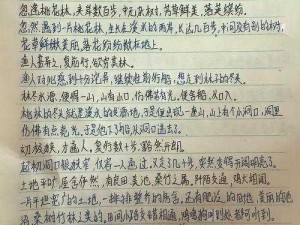 忽逢桃花林,夹岸数百步,中无杂树,芳草鲜美,落英缤纷
忽然遇到一片桃花林,生长在溪流的两岸,长达几百步,中间没有别的树,
花草鲜嫩美丽,落花纷纷散在地上。
渔人甚异之,复前行,欲穷其林。
渔人对此感到十分诧异,继续往前行船,想走到林子的尽头。
林尽水源,便得一山,山有小口,仿佛若有光,便舍船,从口入。
桃林的尽头就是溪水的发源地,于是便出现一座山,山上有个小洞口,洞里
仿佛有点亮光。于是他下了船,从洞口进去了。
初极狭,才通人,复行数十步,豁然开朗。
起初洞口很狭窄,仅容一人通过,又走了几十步,突然变得开阔明亮了。
土地平旷,屋舍俨然,有良田美池,桑竹之属,阡陌交通,鸡犬相闻。
一片平坦宽广的土地,一排排整齐的房舍,还有肥沃的田地,美丽的池
沼,桑树竹林之类的,田间小路交错相通,鸡鸣狗叫到处都可听到。